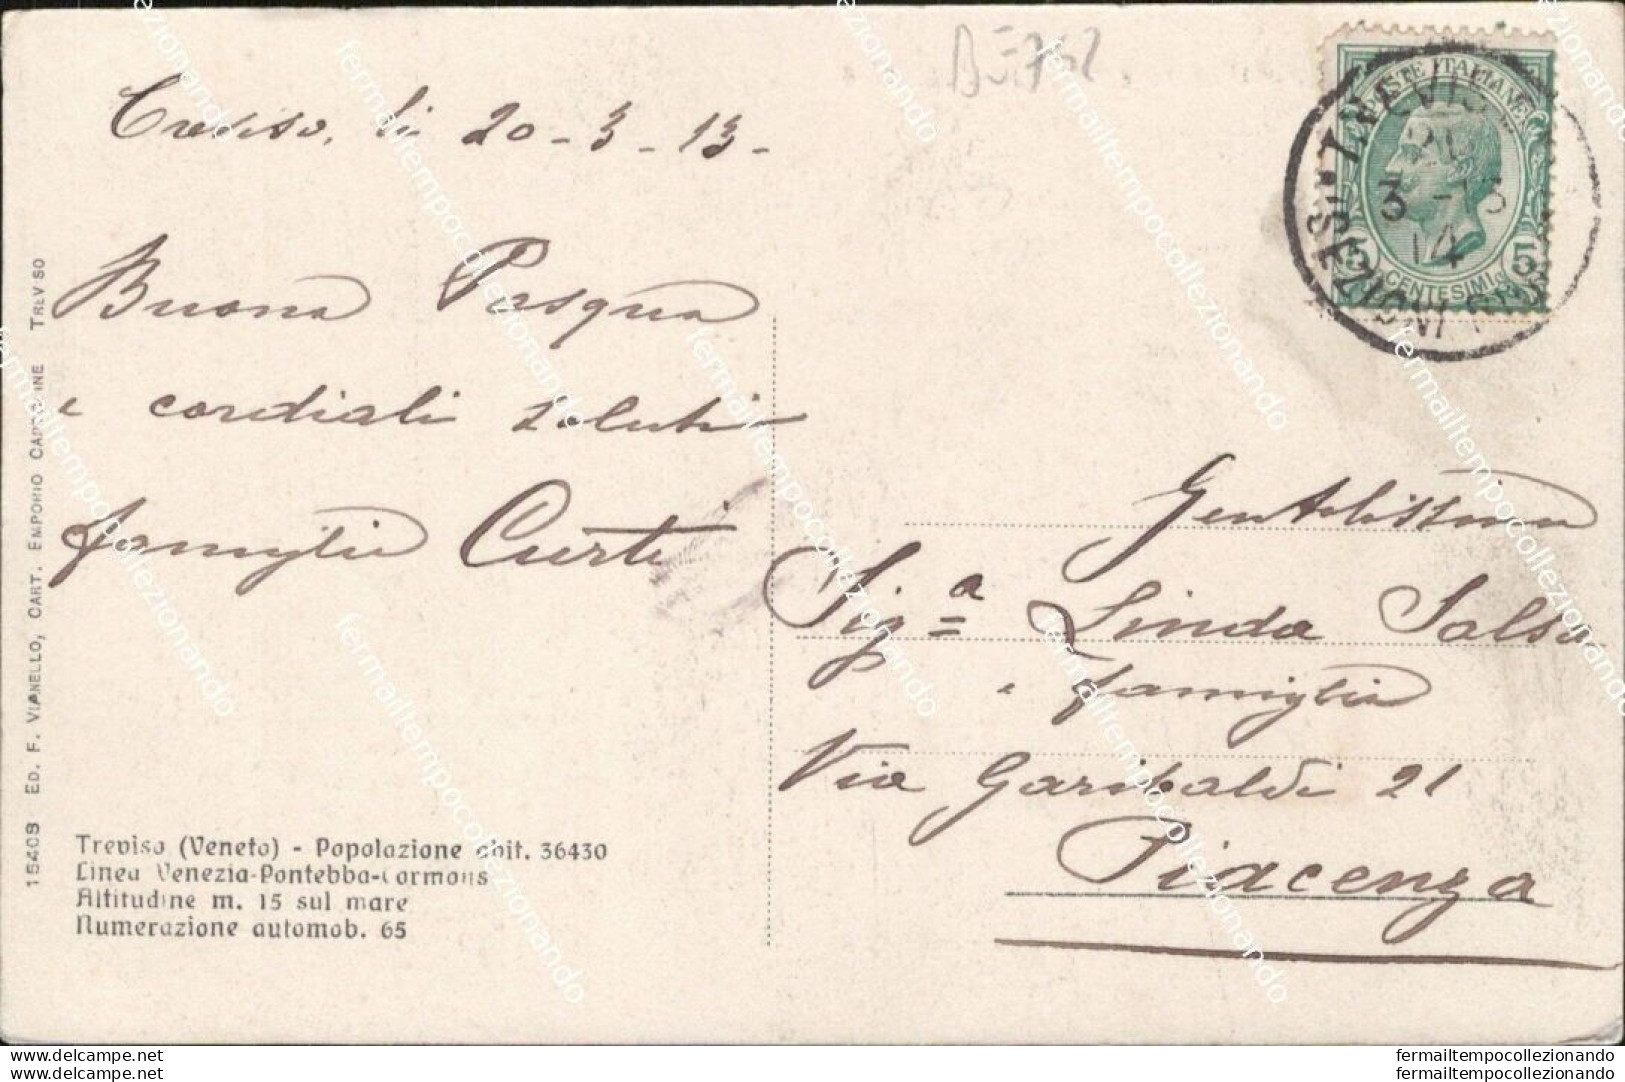 BU762
Treviso, li 20-3-13-
Buona Pasqua
e cordiali saluti
famiglia Curti
POSTE ITALIANE
5 CENTESIMI 5
TREVISO
21
3-13
14
Gentilissima
Sigª Linda Salsi
e famiglia
Via Garibaldi 21
Piacenza
15408 ED. F. VIANELLO, CART. EMPORIO CARTOLINE TREVISO
Treviso (Veneto) - Popolazione abit. 36430
Linea Venezia-Pontebba-Cormons
Altitudine m. 15 sul mare
Numerazione automob. 65
fermailtempocollezionando
www.delcampe.net
www.delcampe.net
fermailtempocollezionando
fermailtempocollezionando